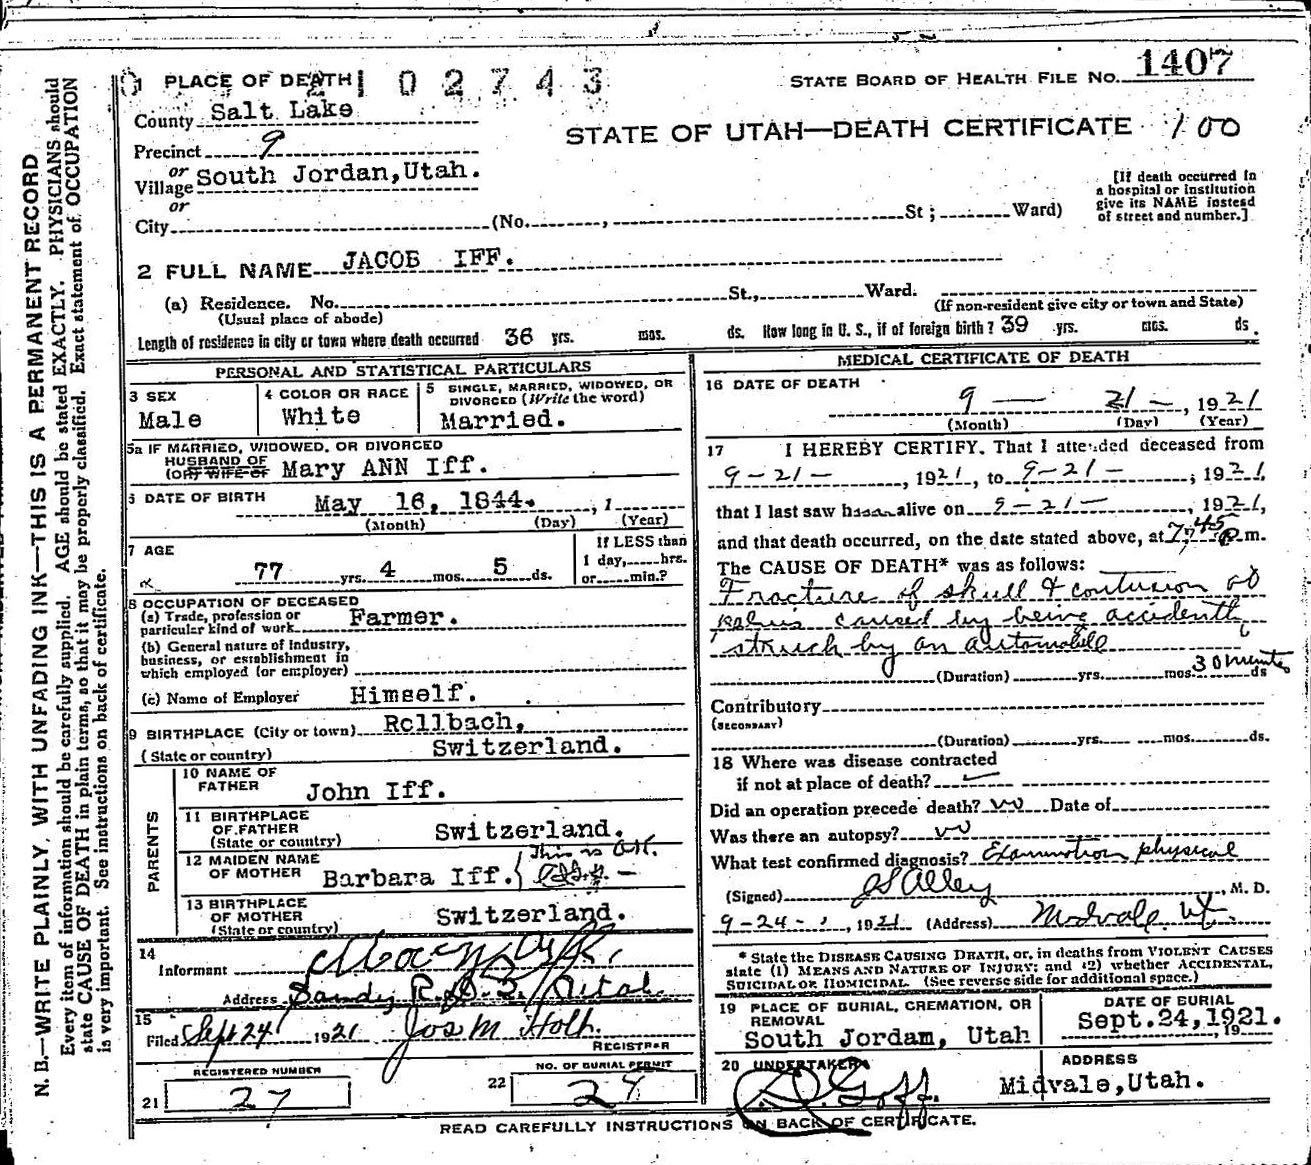 1 PLACE OF DEATH
2102743
STATE BOARD OF HEALTH FILE No. 1407
County Salt Lake
STATE OF UTAH—DEATH CERTIFICATE 100
Precinct 9
or
Village South Jordan,Utah.
or
City (No. , St ; Ward)
[If death occurred in
a hospital or institution
give its NAME instead
of street and number.]
2 FULL NAME JACOB IFF.
(a) Residence. No. St., Ward.
(Usual place of abode) (If non-resident give city or town and State)
Length of residence in city or town where death occurred 36 yrs. mos. ds. How long in U. S., if of foreign birth? 39 yrs. mos. ds.
PERSONAL AND STATISTICAL PARTICULARS
3 SEX
Male
4 COLOR OR RACE
White
5 SINGLE, MARRIED, WIDOWED, OR
DIVORCED (Write the word)
Married.
5a IF MARRIED, WIDOWED, OR DIVORCED
HUSBAND OF
(OR) WIFE OF Mary ANN Iff.
6 DATE OF BIRTH May 16, 1844. , 1
(Month) (Day) (Year)
7 AGE
77 yrs. 4 mos. 5 ds.
If LESS than
1 day, hrs.
or min.?
8 OCCUPATION OF DECEASED
(a) Trade, profession or
particular kind of work Farmer.
(b) General nature of industry,
business, or establishment in
which employed (or employer)
(c) Name of Employer Himself.
9 BIRTHPLACE (City or town) Rollbach,
(State or country) Switzerland.
PARENTS
10 NAME OF
FATHER John Iff.
11 BIRTHPLACE
OF FATHER
(State or country) Switzerland.
12 MAIDEN NAME
OF MOTHER Barbara Iff. This is O.K.
13 BIRTHPLACE
OF MOTHER
(State or country) Switzerland.
14
Informant Mary Iff.
Address Sandy R.D. Utah.
15
Filed Sept 24 1921 Jos M Holt.
REGISTRAR
REGISTERED NUMBER
21 27
NO. OF BURIAL PERMIT
22 27
MEDICAL CERTIFICATE OF DEATH
16 DATE OF DEATH
9 — 21 — , 1921
(Month) (Day) (Year)
17 I HEREBY CERTIFY, That I attended deceased from
9-21- , 1921, to 9-21- ; 1921,
that I last saw h alive on 9-21- , 1921,
and that death occurred, on the date stated above, at 7:45 P.m.
The CAUSE OF DEATH* was as follows:
Fracture of skull & contusion of
pelvis caused by being accidently
struck by an automobile
(Duration) yrs. mos. 30 minutes ds
Contributory
(SECONDARY)
(Duration) yrs. mos. ds.
18 Where was disease contracted
if not at place of death?
Did an operation precede death? no Date of
Was there an autopsy? no
What test confirmed diagnosis? Examination physical
(Signed) J S Alley , M. D.
9-24- , 1921 (Address) Midvale Ut.
* State the DISEASE CAUSING DEATH, or, in deaths from VIOLENT CAUSES
state (1) MEANS AND NATURE OF INJURY; and (2) whether ACCIDENTAL,
SUICIDAL OR HOMICIDAL. (See reverse side for additional space.)
19 PLACE OF BURIAL, CREMATION, OR
REMOVAL
South Jordam, Utah
DATE OF BURIAL
Sept.24,1921. 19
20 UNDERTAKER
D. Goff.
ADDRESS
Midvale,Utah.
READ CAREFULLY INSTRUCTIONS ON BACK OF CERTIFICATE.
N. B.—WRITE PLAINLY, WITH UNFADING INK—THIS IS A PERMANENT RECORD
Every item of information should be carefully supplied. AGE should be stated EXACTLY. PHYSICIANS should
state CAUSE OF DEATH in plain terms, so that it may be properly classified. Exact statement of OCCUPATION
is very important. See instructions on back of certificate.